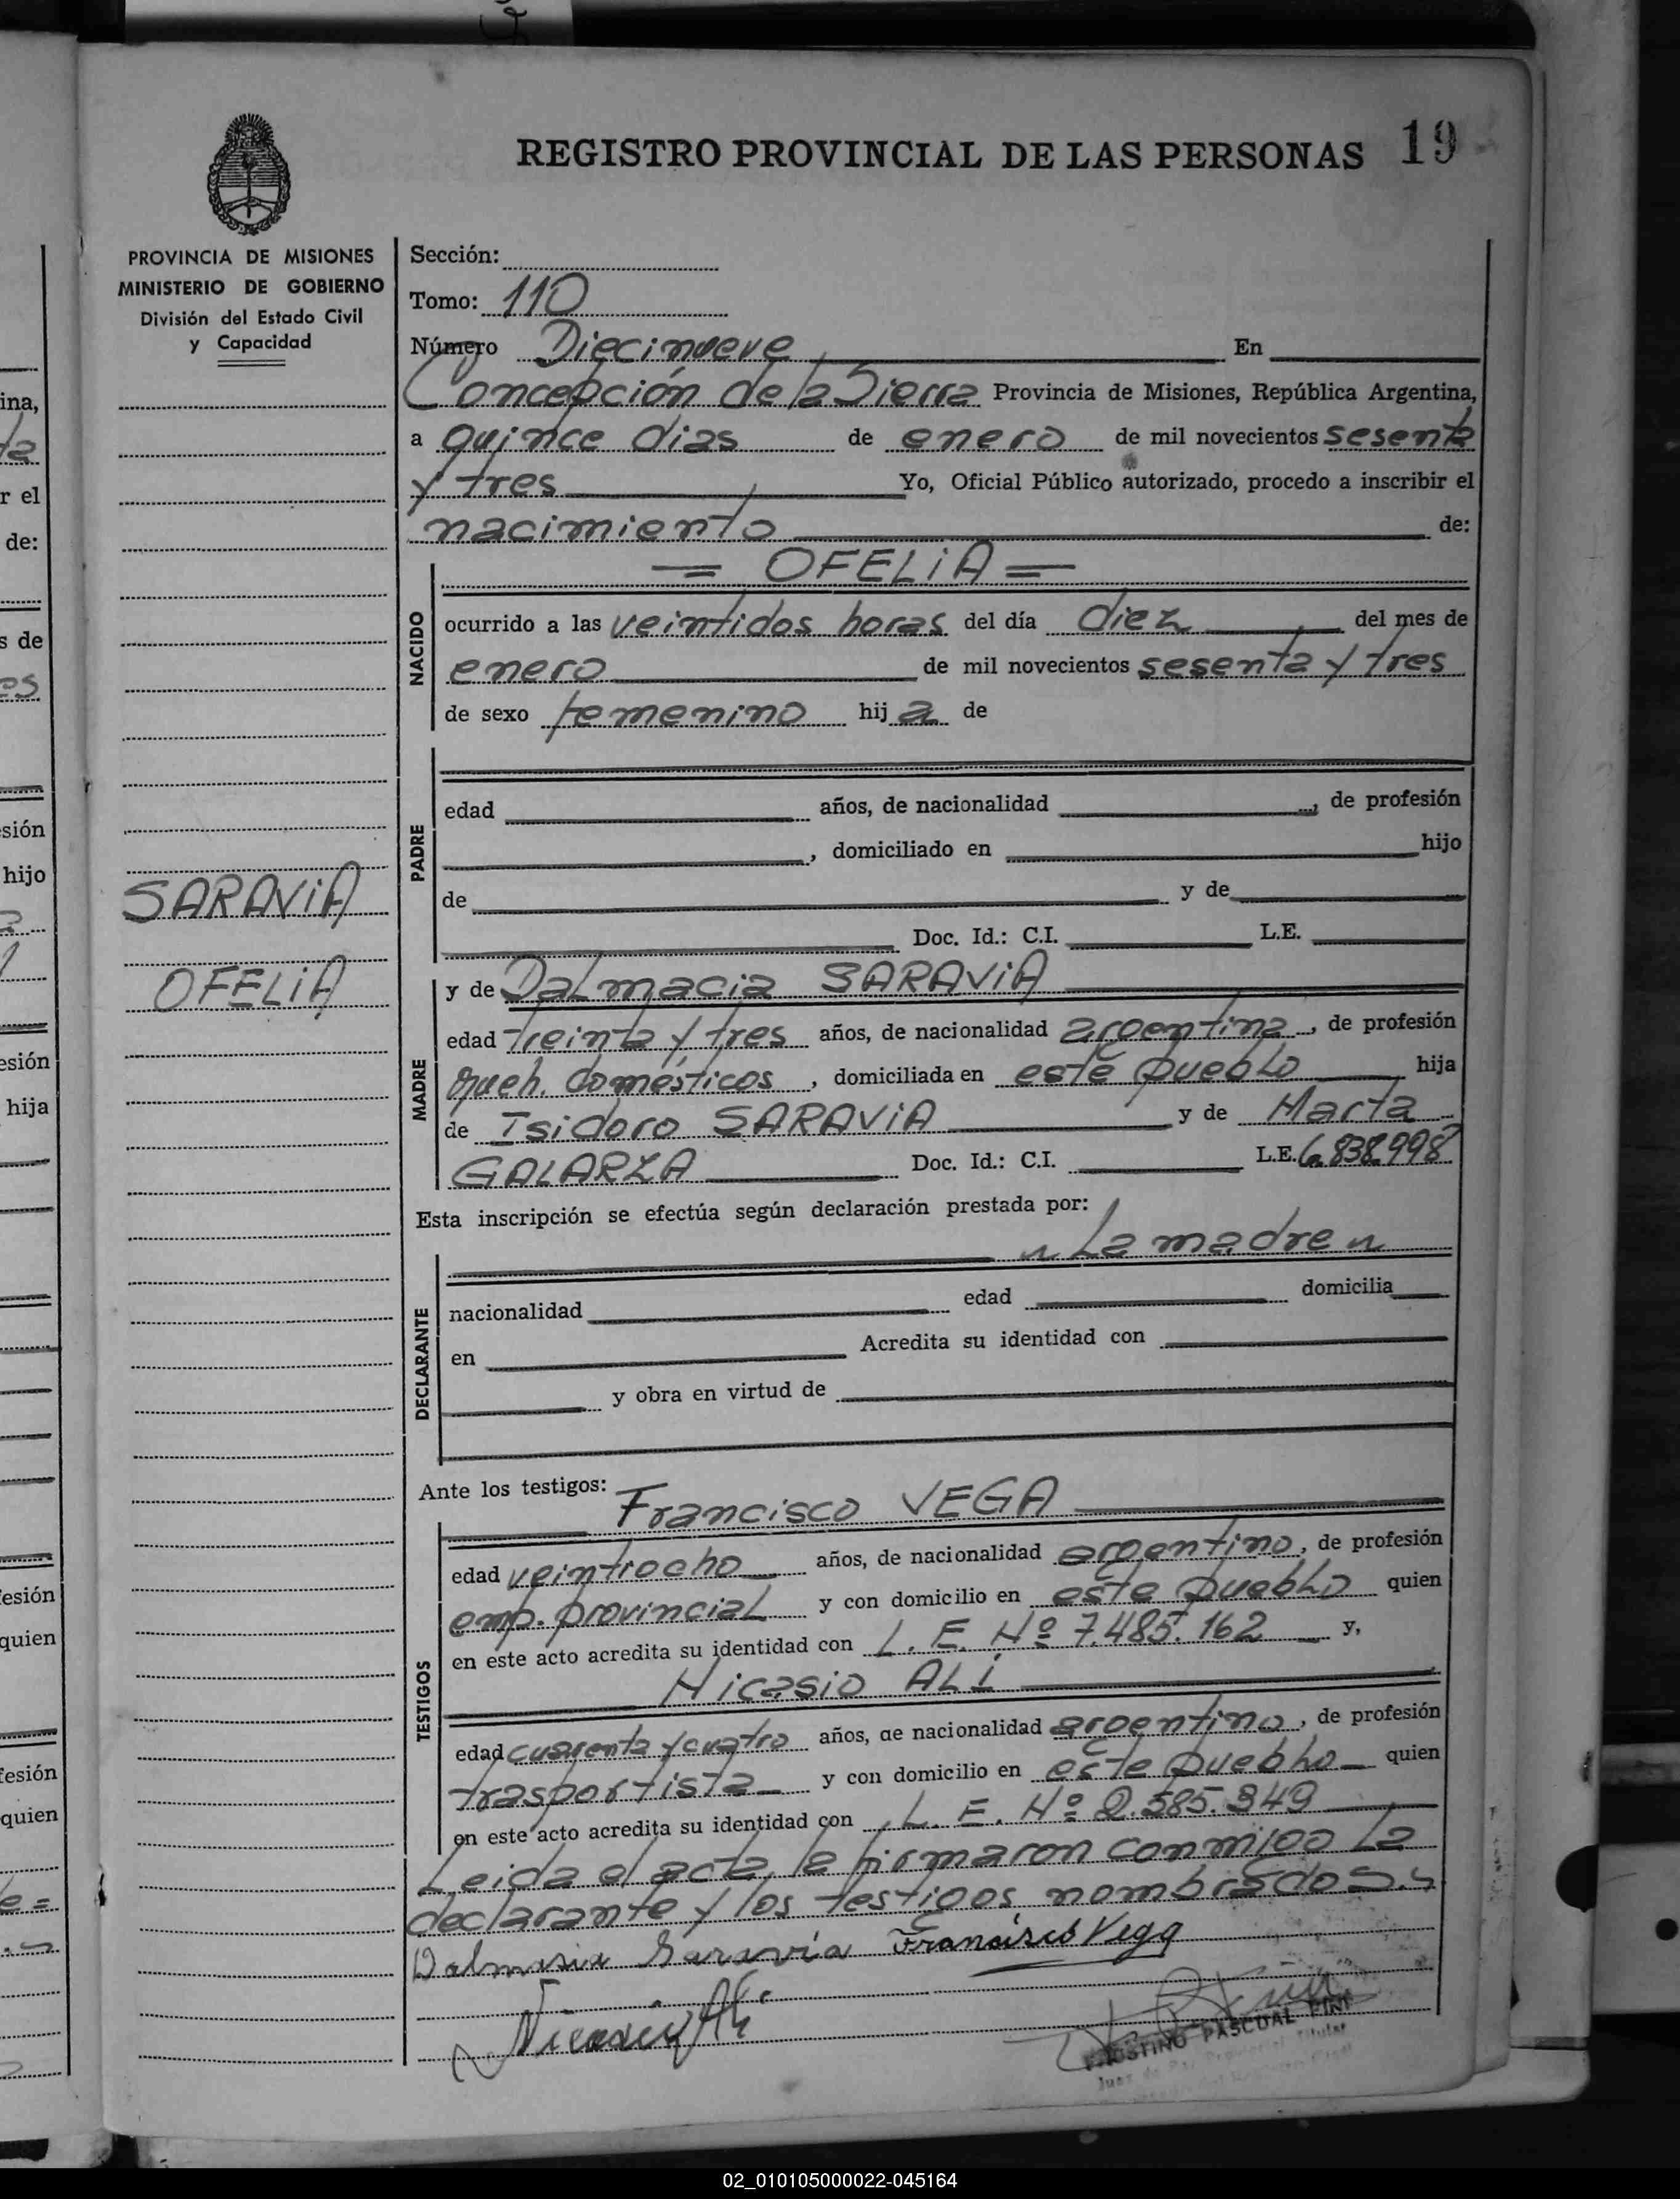 REGISTRO PROVINCIAL DE LAS PERSONAS 19
PROVINCIA DE MISIONES
MINISTERIO DE GOBIERNO
División del Estado Civil
y Capacidad
SARAVIA
OFELIA
Sección:
Tomo: 110
Número Diecinueve En
Concepción de la Sierra Provincia de Misiones, República Argentina,
a quince dias de enero de mil novecientos sesenta
y tres Yo, Oficial Público autorizado, procedo a inscribir el
nacimiento de:
= OFELIA =
NACIDO
ocurrido a las veintidos horas del día diez del mes de
enero de mil novecientos sesenta y tres
de sexo femenino hija de
PADRE
edad años, de nacionalidad , de profesión
, domiciliado en hijo
de y de
Doc. Id.: C.I. L.E.
MADRE
y de Dalmacia SARAVIA
edad treinta y tres años, de nacionalidad argentina, de profesión
queh. domésticos, domiciliada en este pueblo hija
de Isidoro SARAVIA y de Marta
GALARZA Doc. Id.: C.I. L.E. 6.838.998
Esta inscripción se efectúa según declaración prestada por:
La madre
DECLARANTE
nacionalidad edad domicilia
en Acredita su identidad con
y obra en virtud de
Ante los testigos: Francisco VEGA
TESTIGOS
edad veintiocho años, de nacionalidad argentino, de profesión
emp. provincial y con domicilio en este pueblo quien
en este acto acredita su identidad con L. E. Nº 7.485.162 y,
Nicasio ALÍ
edad cuarenta y cuatro años, de nacionalidad argentino, de profesión
trasportista y con domicilio en este pueblo quien
en este acto acredita su identidad con L. E. Nº 2.585.349
Leida el acta, la firmaron conmigo la
declarante y los testigos nombrados.
Dalmasia Saravia Francisco Vega
Nicasio Alí
FAUSTINO PASCUAL PINI
02_010105000022-045164